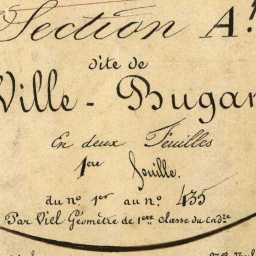 Section A.
dite de
Ville - Bugar
En deux Feuilles
1ere feuille.
du no 1er au no 435
Par Viel Géomètre de 1ere classe du Cadre